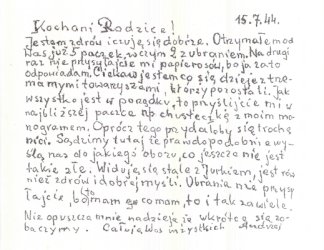 15.7.44.
Kochani Rodzice!
Jestem zdrów i czuję się dobrze. Otrzymałem od
Was już 5 paczek, w czym 2 z ubraniem. Na drugi
raz nie przysyłajcie mi papierosów, bo ja za to
odpowiadam. Ciekaw jestem co się dzieje z tne-
ma mymi towarzyszami, którzy pozostali. Jak
wszystko jest w porządku, to przyślijcie mi w
najbliższej paczce np chusteczkę z moim mo-
nogramem. Oprócz tego przydałoby się trochę
nici. Sądzimy tutaj że prawdopodobnie wy-
ślą nas do jakiegoś obozu, co jeszcze nie jest
takie złe. Widuję się stale z Jurkiem, jest rów
nież zdrów i dobrej myśli. Ubrania nie przysy
łajcie, bo to mam co mam, to i tak za wiele.
Nie opuszcza mnie nadzieja że wkrótce się zo-
baczymy. Całuję Was wszystkich Andrzej